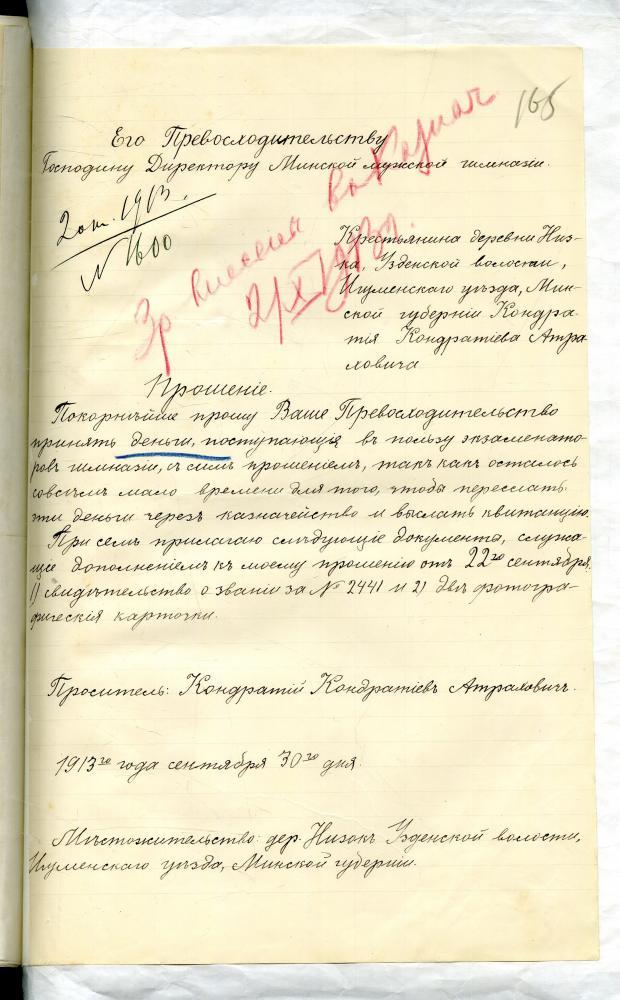 165
Его Превосходительству
Господину Директору Минской мужской гимназіи.
2 окт. 1913.
№ 1600
2/X 1913 г.
Крестьянина деревни Низ-
ка, Узденской волости,
Игуменскаго уѣзда, Мин-
ской губерніи Кондра-
тія Кондратіева Атра-
ховича
Прошеніе.
Покорнѣйше прошу Ваше Превосходительство
принять деньги, поступающія въ пользу экзаменато-
ровъ гимназіи, съ симъ прошеніемъ, такъ какъ осталось
совсѣмъ мало времени для того, чтобы переслать
эти деньги черезъ казначейство и выслать квитанцію.
При семъ прилагаю слѣдующіе документы, служа-
щіе дополненіемъ къ моему прошенію отъ 22го сентября:
1) свидѣтельство о званіи за № 2441 и 2) двѣ фотогра-
фическія карточки.
Проситель: Кондратій Кондратіевъ Атраховичъ.
1913го года сентября 30го дня.
Мѣстожительство: дер. Низокъ Узденской волости,
Игуменскаго уѣзда, Минской губерніи.